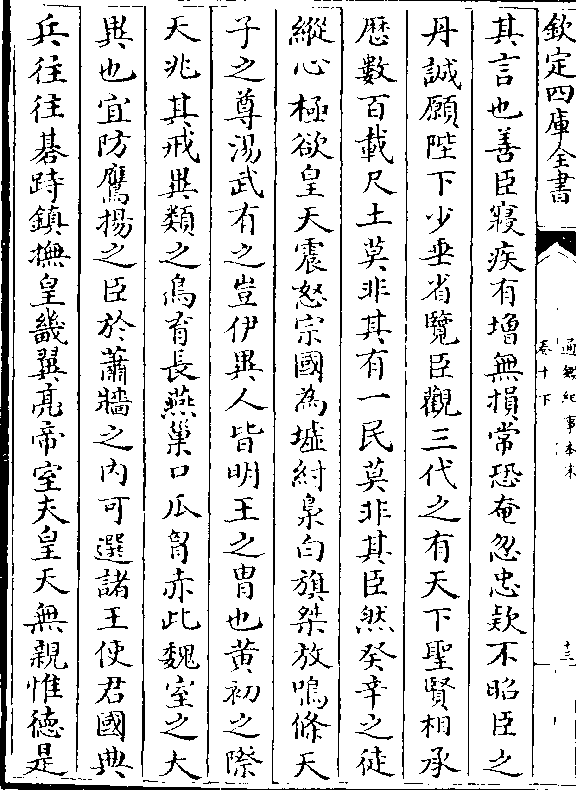 欽定四庫全書
通鑑紀事本末
卷十下
十三
其言也善臣寢疾有增無損常恐奄忽忠款不昭臣之
丹誠願陛下少垂省覽臣觀三代之有天下聖賢相承
歴數百載尺土莫非其有一民莫非其臣然癸辛之徒
縱心極欲皇天震怒宗國為墟紂梟白旗桀放鳴條天
子之尊湯武有之豈伊異人皆明王之胄也黄初之際
天兆其戒異類之鳥育長燕巢口爪胷赤此魏室之大
異也宜防鷹揚之臣於蕭牆之内可選諸王使君國典
兵往往棊跱鎮撫皇畿翼亮帝室夫皇天無親惟德是